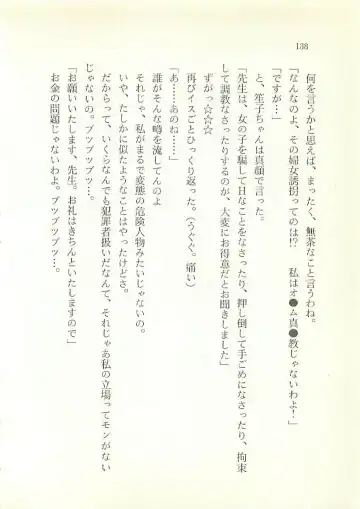 138
何を言うかと思えば、まったく、無茶なこと言うわね。
「なんなのよ、その婦女誘拐ってのは!?　私はオ●ム真●教じゃないわよ!」
「ですが…」
と、笙子ちゃんは真顔で言った。
「先生は、女の子を騙してHなことをなさったり、押し倒して手ごめになさったり、拘束
して調教なさったりするのが、大変にお得意だとお聞きしました」
ずがっ☆☆☆
再びイスごとひっくり返った。(うぐぐ。痛い)
「あ……あのね……」
誰がそんな噂を流してんのよ
それじゃ、私がまるで変態の危険人物みたいじゃないの。
いや、たしかに似たようなことはやったけどさ。
だからって、いくらなんでも犯罪者扱いだなんて、それじゃあ私の立場ってモンがない
じゃないの。ブツブツブツ…。
「お願いいたします、先生。お礼はきちんといたしますので」
お金の問題じゃないわよ。ブツブツブツ…。